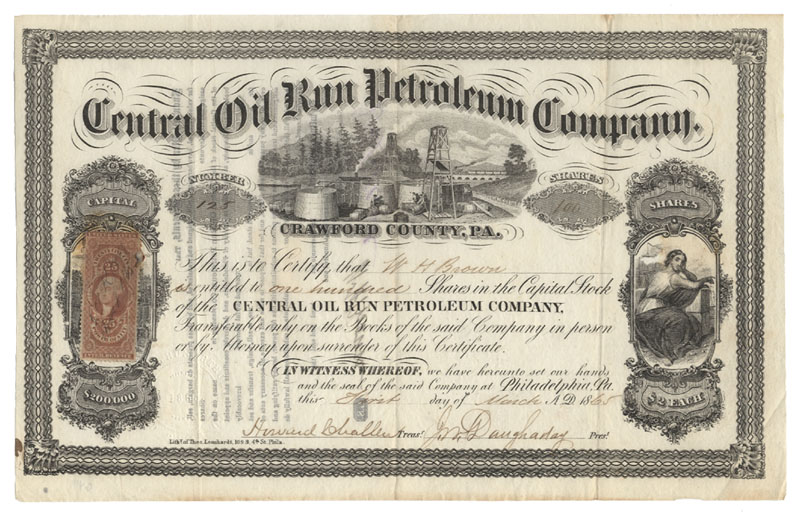 Central Oil Run Petroleum Company.
NUMBER
125
SHARES
100
CRAWFORD COUNTY, PA.
CAPITAL
$200000
SHARES
$2 EACH
25
25
This is to Certify, that W H Brown
is entitled to one hundred Shares in the Capital Stock
of the CENTRAL OIL RUN PETROLEUM COMPANY,
Transferable only on the Books of the said Company in person
or by Attorney upon surrender of this Certificate.
IN WITNESS WHEREOF, we have hereunto set our hands
and the seal of the said Company at Philadelphia, Pa.
this First day of March A.D 1865
Howard Treasr. J. W. Daughaday Prest.
Lithy. of Theo. Leonhardt, S. 4th St. Phila.